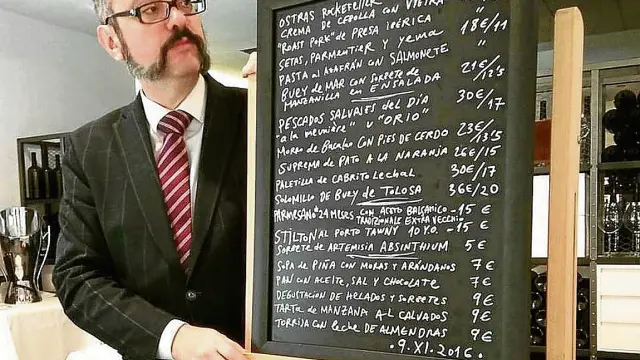 OSTRAS ROCKEFELLER
CREMA DE CEBOLLA CON VIEIRA "
"ROAST PORK" DE PRESA IBÉRICA 18€/11
SETAS, PARMENTIER Y YEMA "
PASTA AL AZAFRÁN CON SALMONETE "
BUEY DE MAR CON SORBETE DE
MANZANILLA EN ENSALADA 21€/13'5
PESCADOS SALVAJES DEL DÍA
"a la meunière" U "ORIO" 30€/17
MORRO DE BACALAO CON PIES DE CERDO 23€/13'5
SUPREMA DE PATO A LA NARANJA 26€/15
PALETILLA DE CABRITO LECHAL 30€
SOLOMILLO DE BUEY DE TOLOSA 36€/20
PARMESANO 24 MESES CON ACETO BALSAMICO - 15 €
TRADIZIONALE EXTRA VECCHIO
STILTON AL PORTO TAWNY 10 Y.O. - 15 €
SORBETE DE ARTEMISIA ABSINTHIUM 5€
SOPA DE PIÑA CON MORAS Y ARÁNDANOS 7€
PAN CON ACEITE, SAL Y CHOCOLATE 7€
DEGUSTACIÓN DE HELADOS Y SORBETES 9€
TARTA DE MANZANA AL CALVADOS 9€
TORRIJA CON LECHE DE ALMENDRAS 9€
.9.XI.2016.